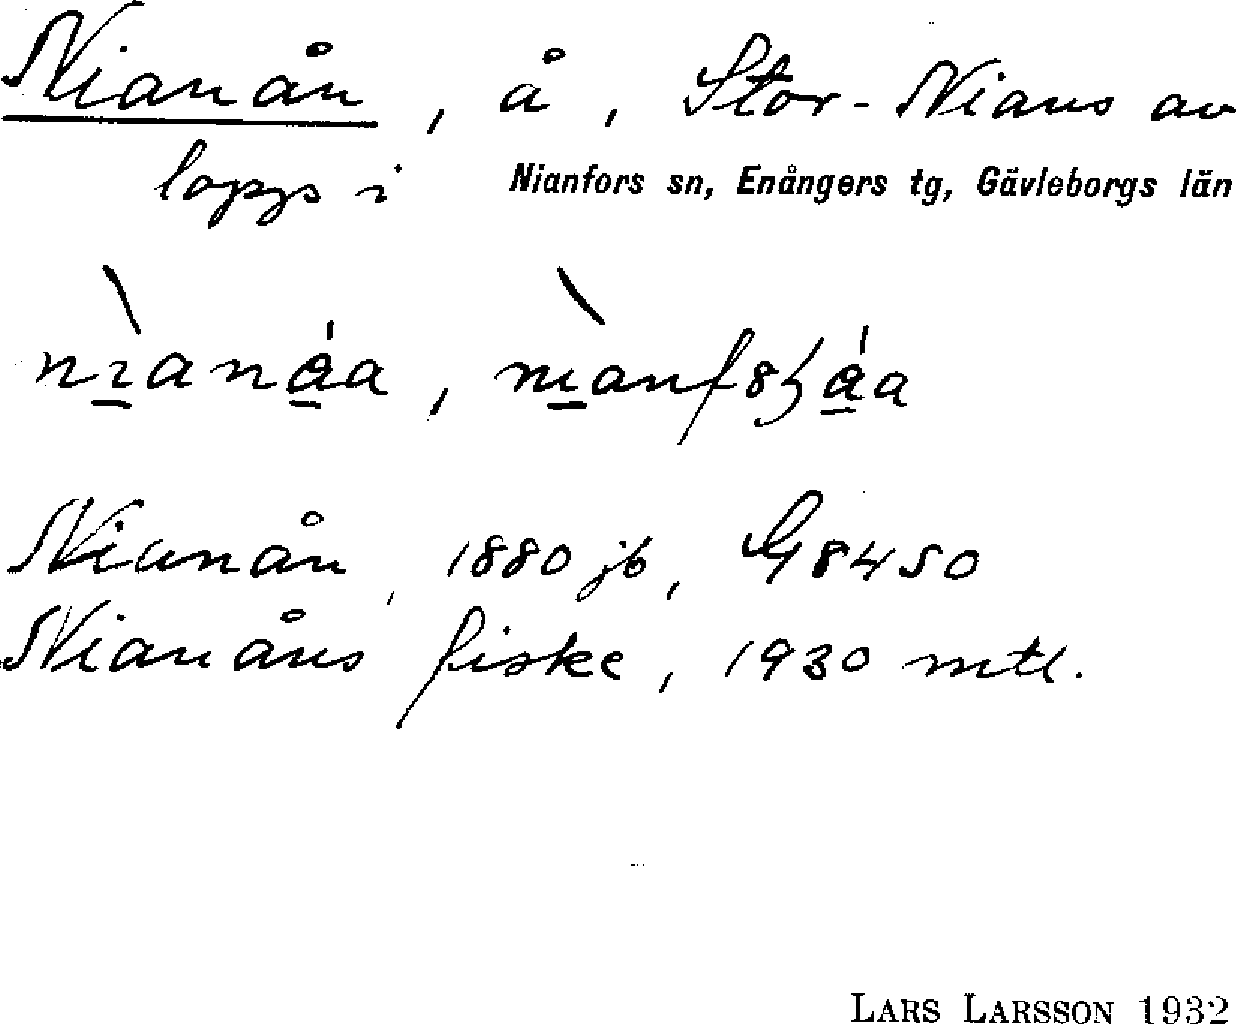 Nianån, å, Stor-Nians av
lopp i Nianfors sn, Enångers tg, Gävleborgs län
Nianån, 1880 jb, G 8450
Nianåns fiske, 1930 mtl.
LARS LARSSON 1932